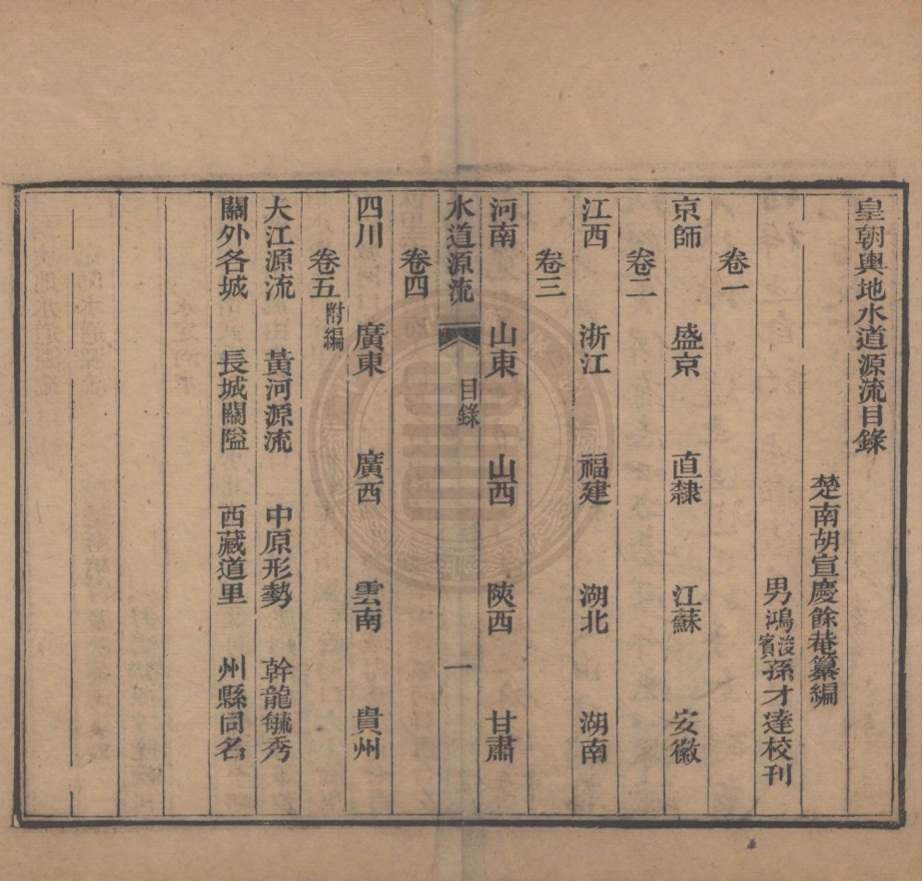 皇朝輿地水道源流目錄
楚南胡宣慶餘菴纂編
男鴻浚賓孫才達校刊
卷一
京師 盛京 直隸 江蘇 安徽
卷二
江西 浙江 福建 湖北 湖南
卷三
河南 山東 山西 陝西 甘肅
水道源流 目錄 一
卷四
四川 廣東 廣西 雲南 貴州
卷五附編
大江源流 黃河源流 中原形勢 幹龍毓秀
關外各城 長城關隘 西藏道里 州縣同名